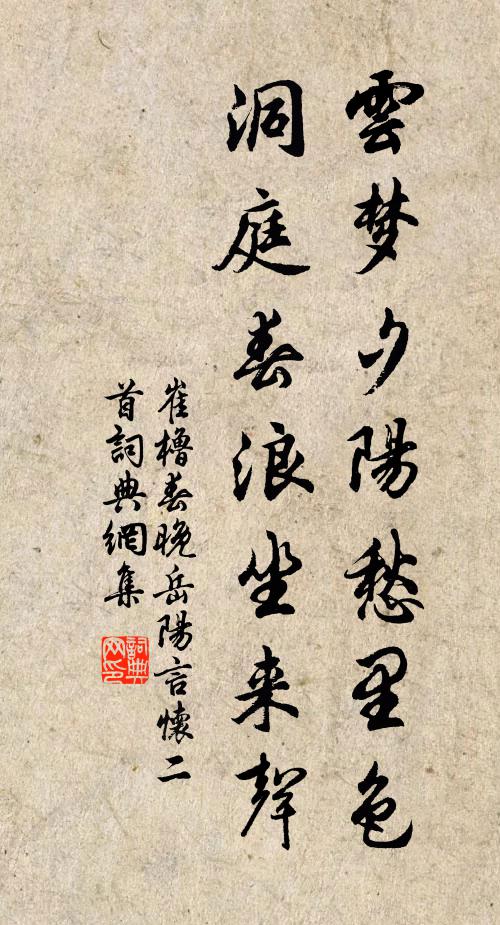 雲梦夕陽愁里色
洞庭春浪坐来聲
崔櫓春晚岳陽言懷二
首詞典網集
詞典
网印